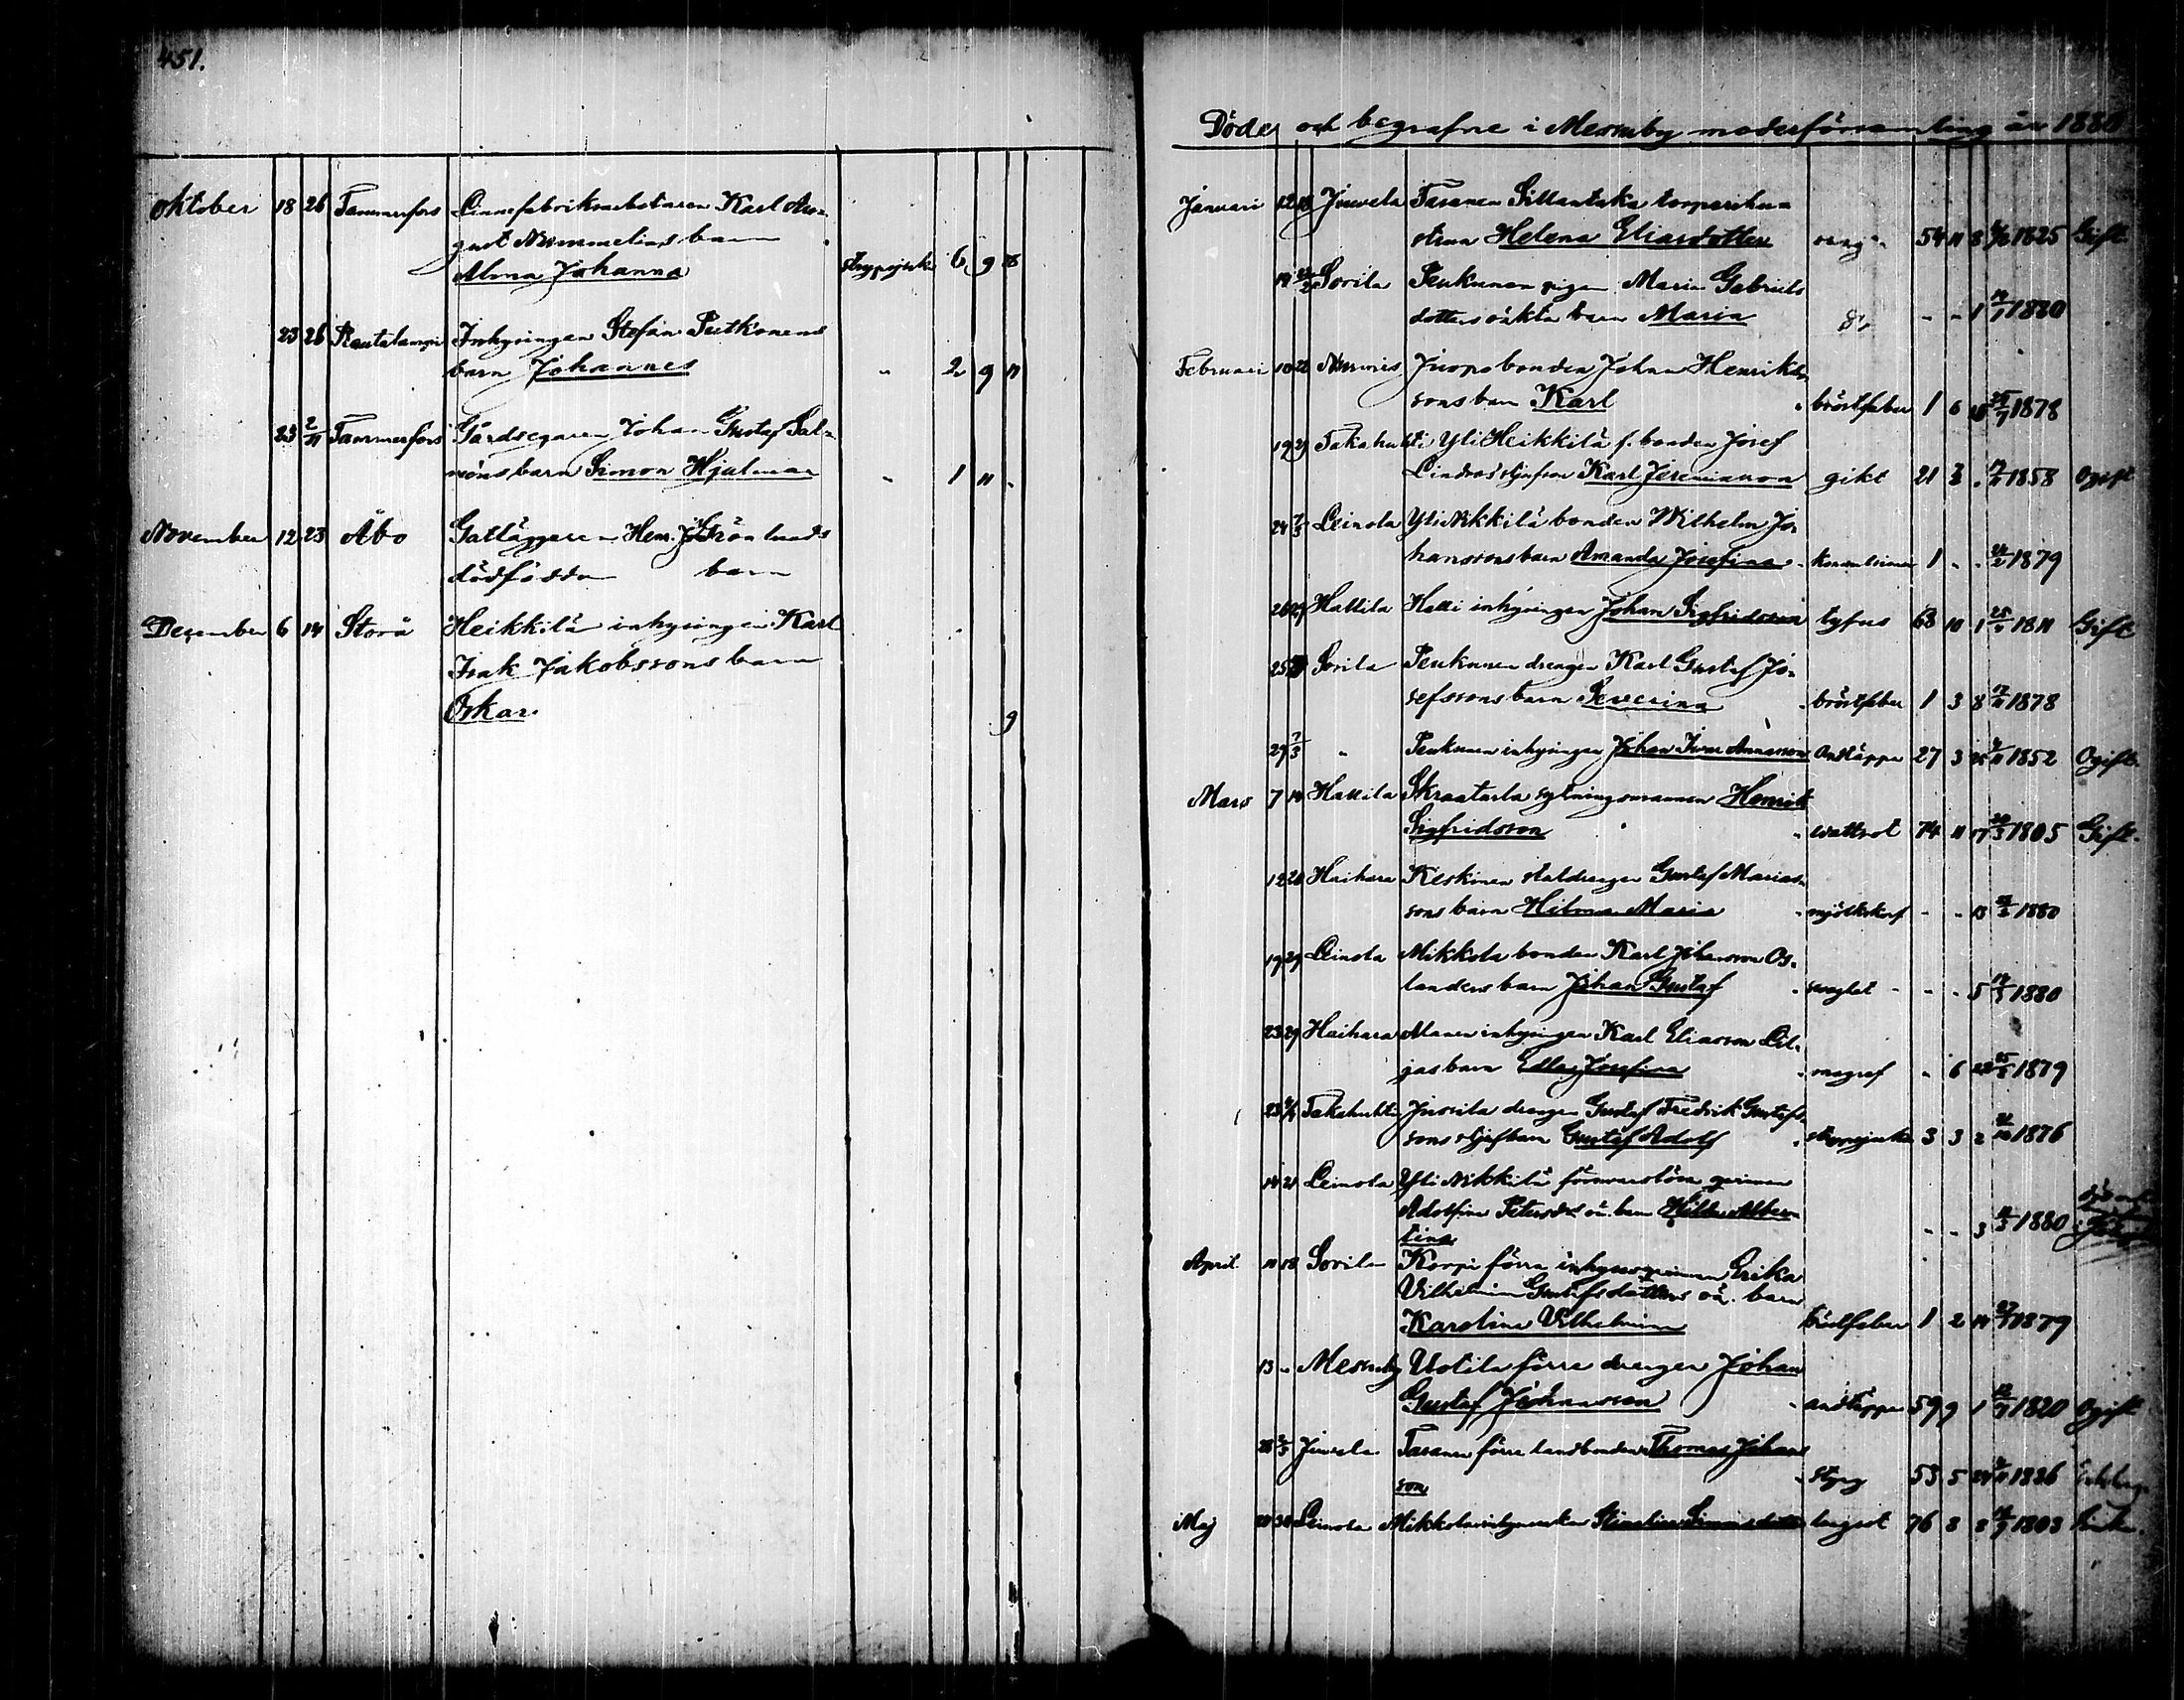 451.
Oktober 18 26 Tammerfors Linnefabriksarbetaren Karl Au-
gust Nummelins barn
Alma Johanna strypsjuka 6 9
23 26 Rautalampi Inhysingen Stefan Puttkonens
barn Johannes " 2 9 11
23 2/11 Tammerfors Gårdsegaren Johan Gustaf Sal-
nöns barn Simon Hjalmar " 1 11 -
November 12 23 Åbo Gatläggaren Henr. Grönlunds
dödfödda barn
December 6 14 Storå Heikkilä inhysingen Karl
Isak Jakobssons barn
Oskar 9
Döde och begrafne i Messuby moderförsamling år 1880
Januari 12 18 Juvela Tasanen Sillantaka torparehu-
strun Helena Eliasdotter 54 11 8 1825 Gift
19 22/2 Sorila Penkunen pigan Maria Gabriels
dotters oäkta barn Maria - - 1 1880
Februari 10 22 Nurmis Juopo bonden Johan Henriks
sons barn Karl bröstfeber 1 6 1878
19 29 Takahuhti Yli Heikkilä f. bonden Josef
Lindroos styfson Karl Jeremiasson gikt 21 3 - 1858 Ogift
24 7/3 Leinola Yli Nikkilä bonden Wilhelm Jo-
hanssons barn Amanda Josefina 1 - - 24/2 1879
26 29 Hallila Halli inhysingen Johan Sigfridsson tyfus 68 10 1 1811 Gift
25 Sorila Penkunen drengen Karl Gustaf Jo-
sefssons barn Severina bröstfeber 1 3 8 17/11 1878
29 7/3 " Penkunen inhysingen Johan Ivar Annasson andtäppa 27 3 25 1852 Ogift
Mars 7 14 Hallila Skraatarla sytningsmannen Henrik
Sigfridsson wattsot 74 11 17 20/3 1805 Gift.
12 20 Haihara Keskinen staldrengen Gustaf Marias-
sons barn Hilma Maria mjölkskorf - - 13 1880
19 29 Leinola Mikkola bonden Karl Johansson Os-
landers barn Johan Gustaf swaghet - - 5 14/3 1880
23 29 Haihara Manen inhysingen Karl Eliasson Lil-
jas barn Edla Josefina magref - 6 1879
23 Takahuhti Jussila drengen Gustaf Fredrik Gustafs-
sons styfbarn Gustaf Adolf strypsjuka 3 3 2 21/12 1876
14 21 Leinola Yli Nikkilä förswarslösa qwinnan
Adolfina Petersdrs oä. barn Hilda Alber-
tina - - 3 11/3 1880
April 11 18 Sorila Korpi förra inhysesqwinnan Erika
Vilhelmina Gustafsdotters oä. barn
Karolina Vilhelmina bröstfeber 1 2 14 1879
13 " Messuby Uotila förre drengen Johan
Gustaf Johansson andtäppa 59 9 1 12/7 1820 Ogift
28 2/5 Juvela Tasanen förre landbonden Thomas Johans
son styng 53 5 1826
Maj 20 30 Leinola Mikkola inhyseenkan Simonsdotter lungsot 76 8 8 1803 Enka.